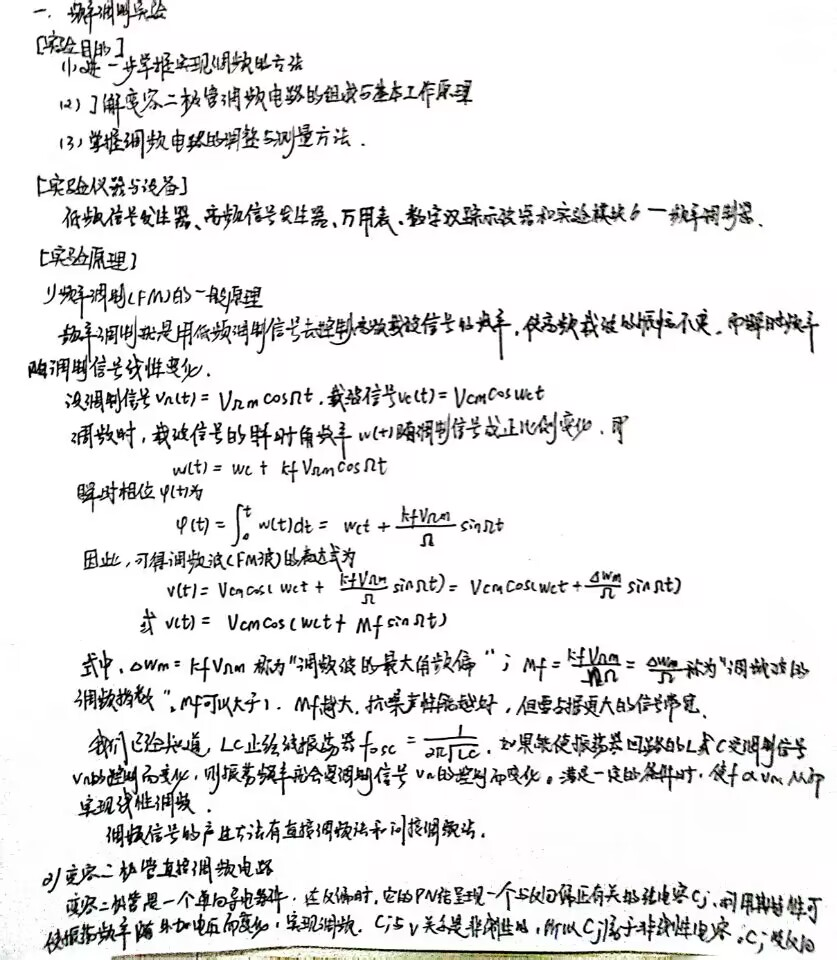 一. 频率调制实验
[实验目的]
(1)进一步掌握实现调频的方法
(2)了解变容二极管调频电路的组成与基本工作原理
(3)掌握调频电路的调整与测量方法.
[实验仪器与设备]
低频信号发生器、高频信号发生器、万用表、数字双踪示波器和实验模块6—频率调制器.
[实验原理]
1)频率调制(FM)的一般原理
频率调制就是用低频调制信号去控制高频载波信号的频率,使高频载波的振幅不变,而瞬时频率
随调制信号线性变化.
设调制信号VΩ(t)= VΩm cosΩt,载波信号vc(t)= Vcm cos wct
调频时,载波信号的瞬时角频率w(t)随调制信号成正比例变化,即
w(t) = wc + kf VΩm cosΩt
瞬时相位φ(t)为
φ(t) = ∫₀ᵗ w(t)dt = wct + kfVΩm/Ω sinΩt
因此,可得调频波(FM波)的表达式为
v(t)= Vcm cos( wct + kfVΩm/Ω sinΩt)= Vcm cos(wct + Δwm/Ω sinΩt)
或 v(t)= Vcm cos(wct + Mf sinΩt)
式中,Δwm = kf VΩm 称为"调频波的最大角频偏"; Mf = kfVΩm/Ω = Δwm/Ω 称为"调频波的
调频指数",Mf可以大于1. Mf越大,抗噪声性能越好,但要占据更大的信号带宽.
我们已经知道,LC正弦波振荡器 fosc = 1/2π√LC,如果能使振荡器回路的L或C受调制信号
VΩ的控制而变化,则振荡频率就会受调制信号VΩ的控制而变化。满足一定的条件时,使f∝VΩ,从而
实现线性调频.
调频信号的产生方法有直接调频法和间接调频法.
2)变容二极管直接调频电路
变容二极管是一个单向导电器件,在反偏时,它的PN结呈现一个与反向偏压有关的结电容Cj,利用其特性可
使振荡频率随外加电压而变化,实现调频. Cj与v关系是非线性的,所以Cj属于非线性电容。Cj